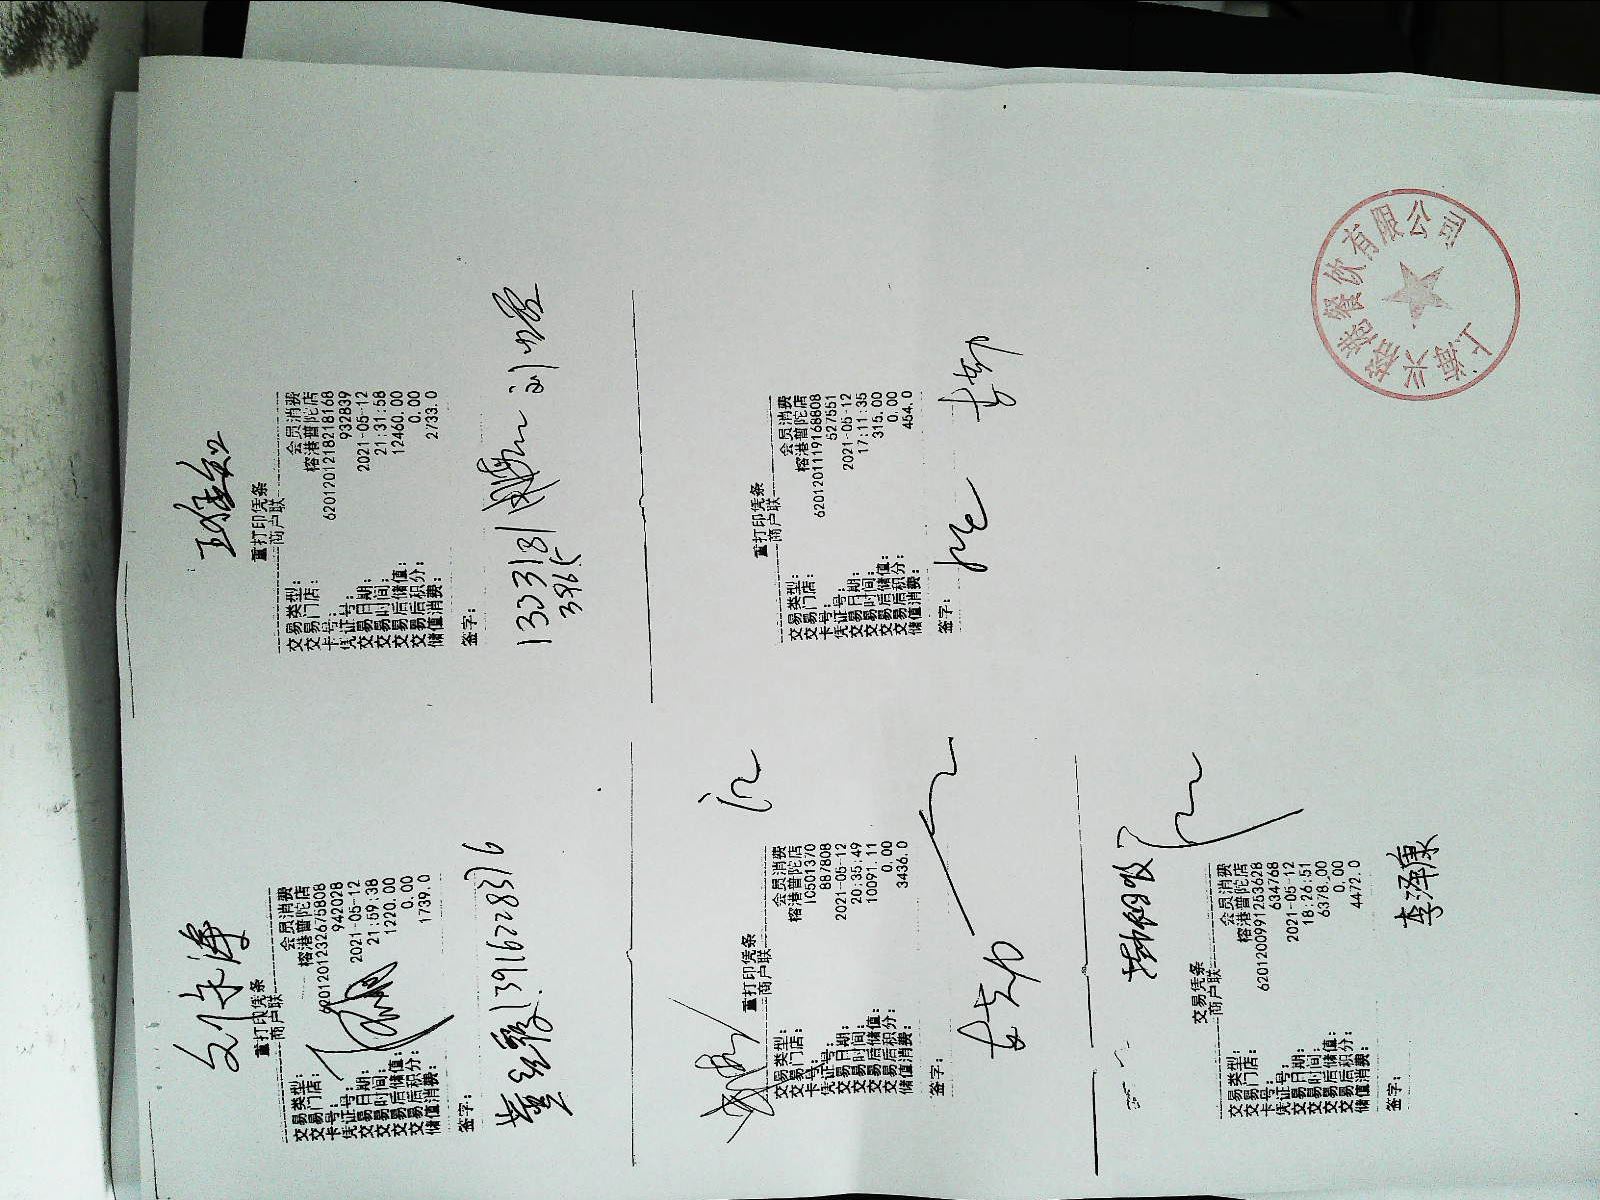 刘海
重打印凭条
商户联
交易类型： 会员消费
交易门店： 榕港普陀店
卡号： 6201201232675808
凭证号： 942028
交易日期： 2021-05-12
交易时间： 21:59:38
交易后储值： 1220.00
交易后积分： 0.00
储值消费： 1739.0
签字：
13916728376
重打印凭条
商户联
交易类型： 会员消费
交易门店： 榕港普陀店
卡号： 6201201218218168
凭证号： 932839
交易日期： 2021-05-12
交易时间： 21:31:58
交易后储值： 12460.00
交易后积分： 0.00
储值消费： 2733.0
签字：
重打印凭条
商户联
交易类型： 会员消费
交易门店： 榕港普陀店
卡号： 10501370
凭证号： 887808
交易日期： 2021-05-12
交易时间： 20:35:49
交易后储值： 10091.11
交易后积分： 0.00
储值消费： 3436.0
签字：
重打印凭条
商户联
交易类型： 会员消费
交易门店： 榕港普陀店
卡号： 6201201119168808
凭证号： 527551
交易日期： 2021-05-12
交易时间： 17:11:35
交易后储值： 315.00
交易后积分： 0.00
储值消费： 454.0
签字：
交易凭条
商户联
交易类型： 会员消费
交易门店： 榕港普陀店
卡号： 6201200991253628
凭证号： 634768
交易日期： 2021-05-12
交易时间： 18:26:51
交易后储值： 6378.00
交易后积分： 0.00
储值消费： 4472.0
签字： 李泽康
上海兴榕港餐饮有限公司